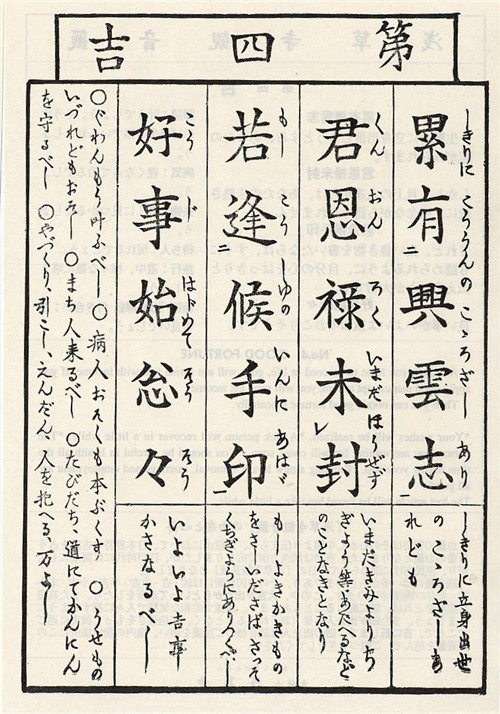 第四吉
累有二興雲志
しきりに こううんの こころざし あり
しきりに立身出世
のこゝろざしあ
れども
君恩禄未レ封
くん おん ろく いまだ ほうぜず
いまだきみよりち
ぎょう等あたるなど
のことなきとなり
若逢二候手印
もし こう
もしよきかきもの
をさしいださば、さっそ
くちぎょうにありつくべし
好事始怱々
こう じ はじめて そう そう
いよいよ吉事
かさなるべし
○ぐわんもう叶ふべし ○病、おそくも本ぶくす、○うせもの
いづれどもおそし ○まち人来るべし ○たびだち、道にてかんにん
を守るべし ○やづくり、引こし、えんだん、人を抱へる、万よし